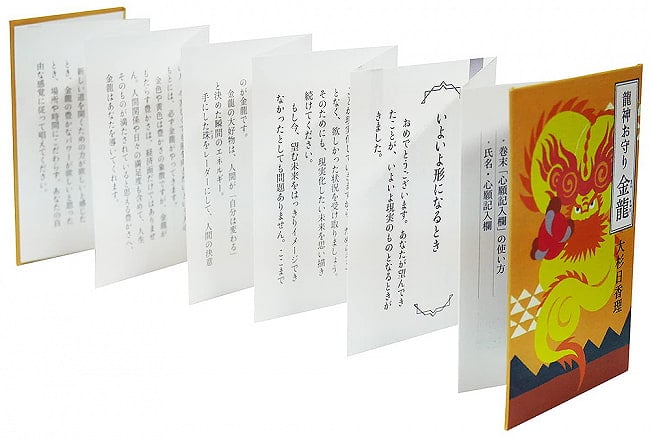 龍神お守り 金龍
大杉日香理
・巻末「心願記入欄」の使い方
・氏名・心願記入欄
いよいよ形になるとき
おめでとうございます。あなたが望んでき
たことが、いよいよ現実のものとなるときが
きました。
となく、欲しかった状況を受け取りましょう。
そのためにも、現実化したい未来を思い描き
続けてください。
もし今、望む未来をはっきりイメージでき
なかったとしても問題ありません。ここまで
のが金龍です。
金龍の大好物は、人間が「自分は変わる」
と決めた瞬間のエネルギー。
手にした珠をレーダーにして、人間の決意
もとには、必ず金龍がやってきます。
金色や黄色は豊かさの象徴ですが、金龍が
もたらす豊かさは、経済面だけではありませ
ん。人間関係や日々の満足度も含めて、人生
そのものが満たされていると思える豊かさへ、
金龍はあなたを導いてくれます。
新しい道を開くための力が欲しいと感じた
とき、金龍の豊かなパワーが欲しいと思った
とき、場所や時間にこだわらず、あなたの自
由な感覚に従って唱えてください。